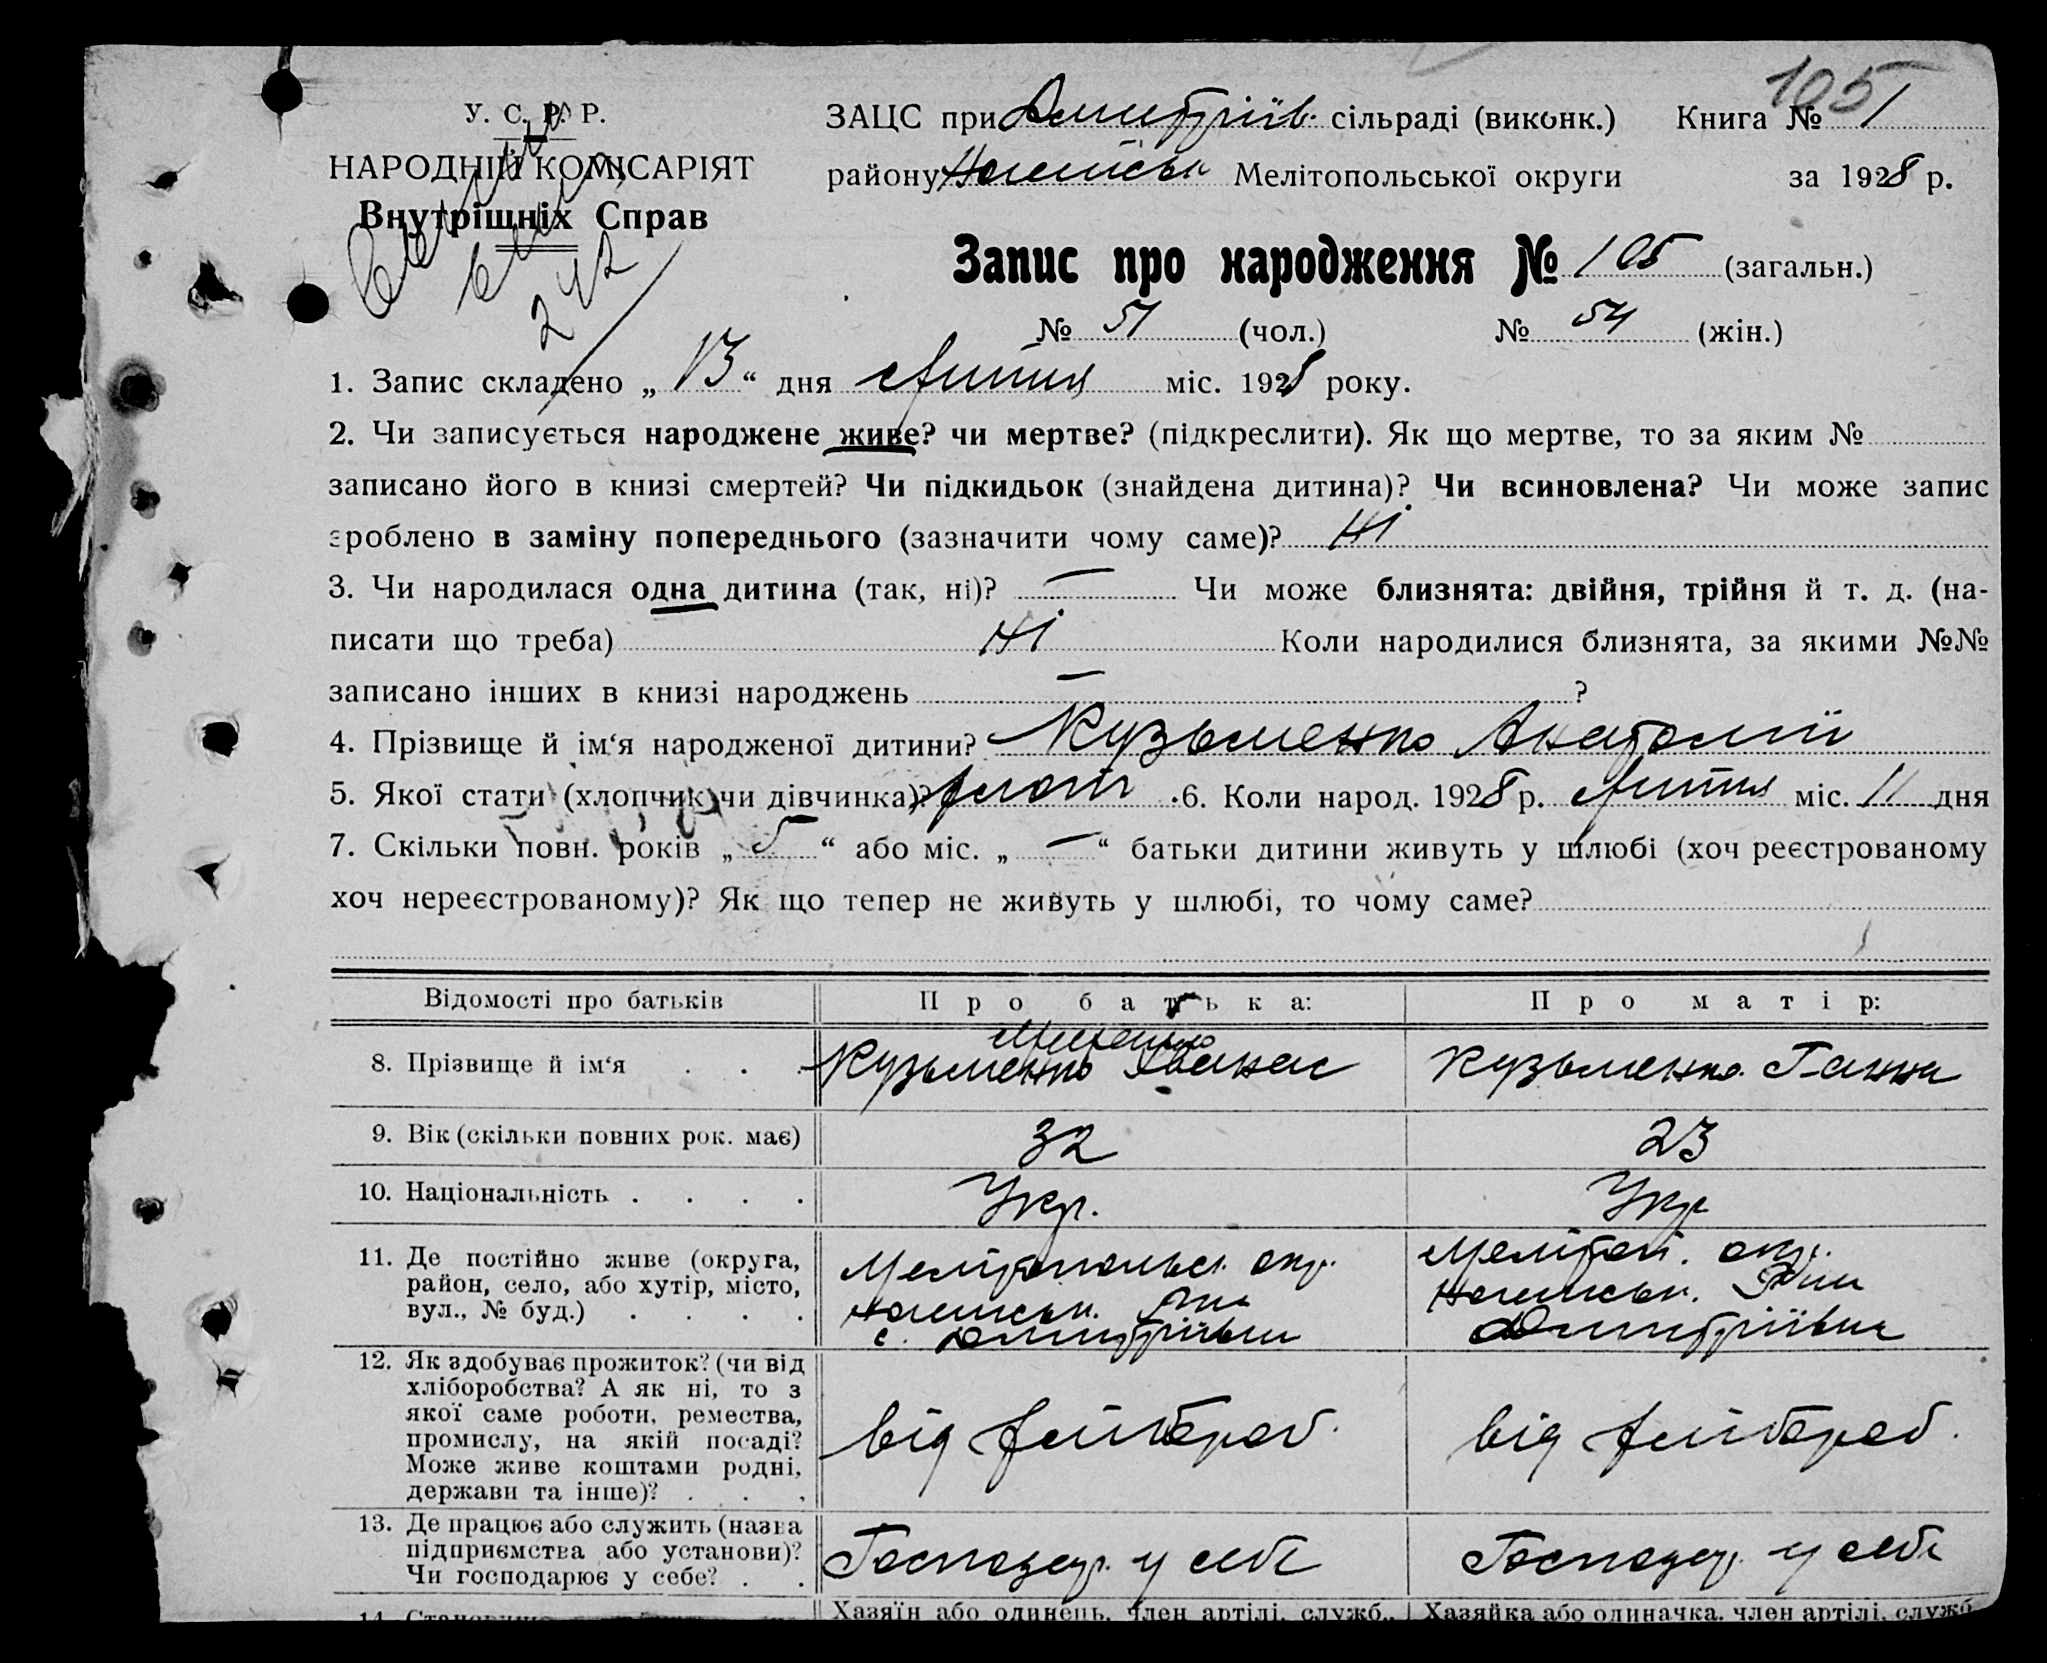 105
У. С. Р. Р.
НАРОДНІЙ КОМІСАРІЯТ
Внутрішніх Справ
ЗАЦС при Дмитріїв. сільраді (виконк.) Книга № 1
району Ногайськ Мелітопольської округи за 1928 р.
Запис про народження № 105 (загальн.)
№ 51 (чол.) № 54 (жін.)
1. Запис складено „ 13 “ дня Липня міс. 1928 року.
2. Чи записується народжене живе? чи мертве? (підкреслити). Як що мертве, то за яким №
записано його в книзі смертей? Чи підкидьок (знайдена дитина)? Чи всиновлена? Чи може запис
зроблено в заміну попереднього (зазначити чому саме)? Ні
3. Чи народилася одна дитина (так, ні)? — Чи може близнята: двійня, трійня й т. д. (на-
писати що треба) Ні Коли народилися близнята, за якими №№
записано інших в книзі народжень — ?
4. Прізвище й ім‘я народженої дитини? Кузьменко Анатолій
5. Якої стати (хлопчик чи дівчинка)? хлоп. 6. Коли народ. 1928 р. Липня міс. 11 дня
7. Скільки повн. років „ 5 “ або міс. „ — “ батьки дитини живуть у шлюбі (хоч реєстрованому
хоч нереєстрованому)? Як що тепер не живуть у шлюбі, то чому саме?
Відомості про батьків Про батька: Про матір:
8. Прізвище й ім‘я . . . Кузьменко Кузьменко Ганна
9. Вік (скільки повних рок. має) 32 23
10. Національність . . . . Укр. Укр
11. Де постійно живе (округа, район, село, або хутір, місто, вул., № буд.) . . . .
Мелітопольськ. окр.
Ногайськ. Р-ну
с. Дмитріївки
Мелітоп. окр.
Ногайськ. Р-ну
Дмитріївка
12. Як здобуває прожиток? (чи від
хліборобства? А як ні, то з
якої саме роботи, ремества,
промислу, на якій посаді?
Може живе коштами родні,
держави та інше)? . . .
від хлібороб. від хлібороб.
13. Де працює або служить (назва
підприємства або установи)?
Чи господарює у себе? . .
Господар. у себе Господар. у себе
Хазяїн або одинець, член артілі, служб., Хазяйка або одиначка, член артілі, служб